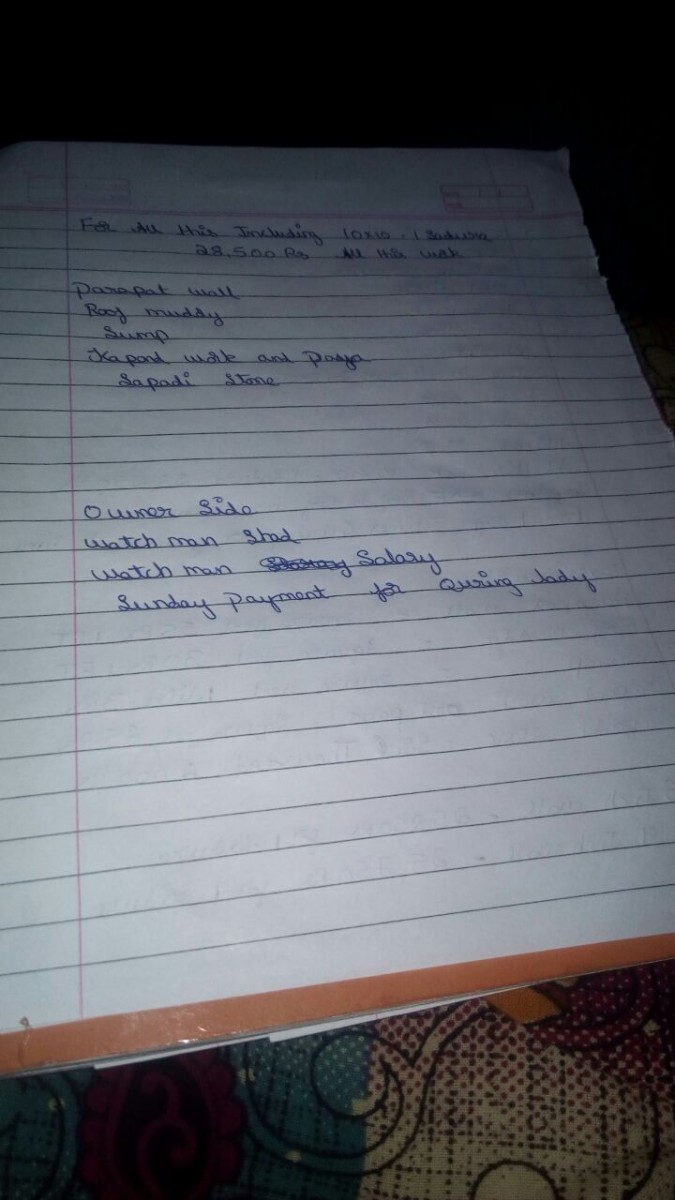 For All this Including 10x10 . 1 Sadura
28.500 Rs All this work
Parapat wall
Roof muddy
Sump
Kapond work and Paaya
Sapadi Stone
Owner Side
watch man Shad
watch man Salary
Sunday Payment for Quring lady